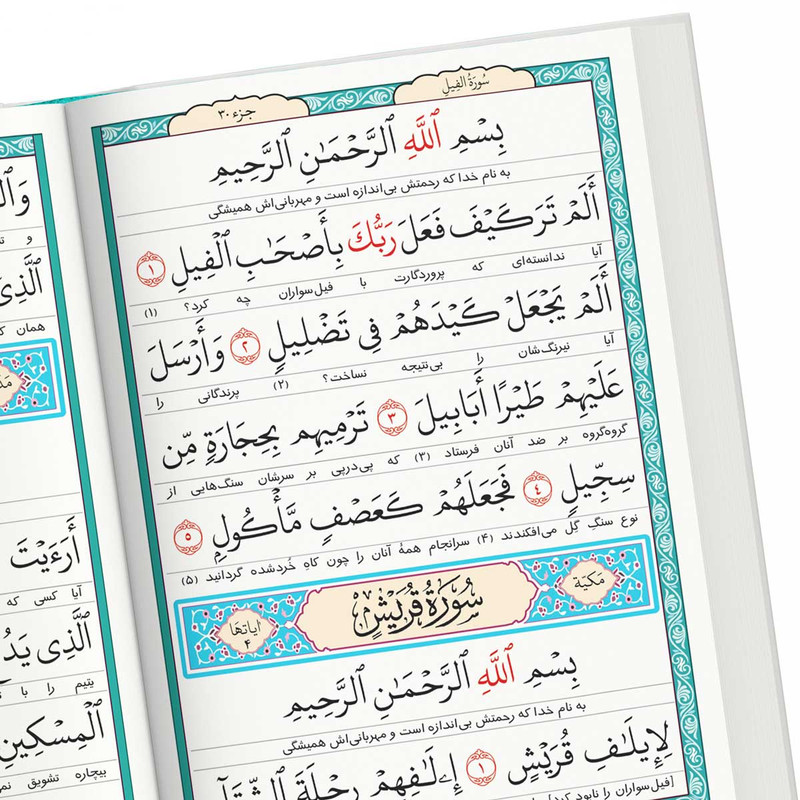 سُورَةُ الفِيلِ
جزء ۳۰
بِسْمِ ٱللَّهِ ٱلرَّحْمَـٰنِ ٱلرَّحِيمِ
به نام خدا که رحمتش بی‌اندازه است و مهربانی‌اش همیشگی
أَلَمْ تَرَ كَيْفَ فَعَلَ رَبُّكَ بِأَصْحَـٰبِ ٱلْفِيلِ ۱
آیا ندانسته‌ای که پروردگارت با فیل‌سواران چه کرد؟ (۱)
أَلَمْ يَجْعَلْ كَيْدَهُمْ فِي تَضْلِيلٍ ۲ وَأَرْسَلَ
آیا نیرنگ‌شان را بی‌نتیجه نساخت؟ (۲) پرندگانی را
عَلَيْهِمْ طَيْرًا أَبَابِيلَ ۳ تَرْمِيهِم بِحِجَارَةٍ مِّن
گروه‌گروه بر ضد آنان فرستاد (۳) که پی‌درپی بر سرشان سنگ‌هایی از
سِجِّيلٍ ٤ فَجَعَلَهُمْ كَعَصْفٍ مَّأْكُولٍ ۵
نوع سنگِ گِل می‌افکندند (۴) سرانجام همهٔ آنان را چون کاهِ خُردشده گردانید (۵)
مَكيّة
سُورَةُ قُرَيْشٍ
ایاتها ۴
بِسْمِ ٱللَّهِ ٱلرَّحْمَـٰنِ ٱلرَّحِيمِ
به نام خدا که رحمتش بی‌اندازه است و مهربانی‌اش همیشگی
لِإِيلَـٰفِ قُرَيْشٍ ۱ إِۦلَـٰفِهِمْ رِحْلَةَ ٱلشِّتَآ
[فیل‌سواران را نابود کرد]
ٱلَّذِي
همان
أَرَءَيْتَ
آیا کسی که
ٱلَّذِي يَدُ
یتیم را با
ٱلْمِسْكِينِ
بیچاره تشویق